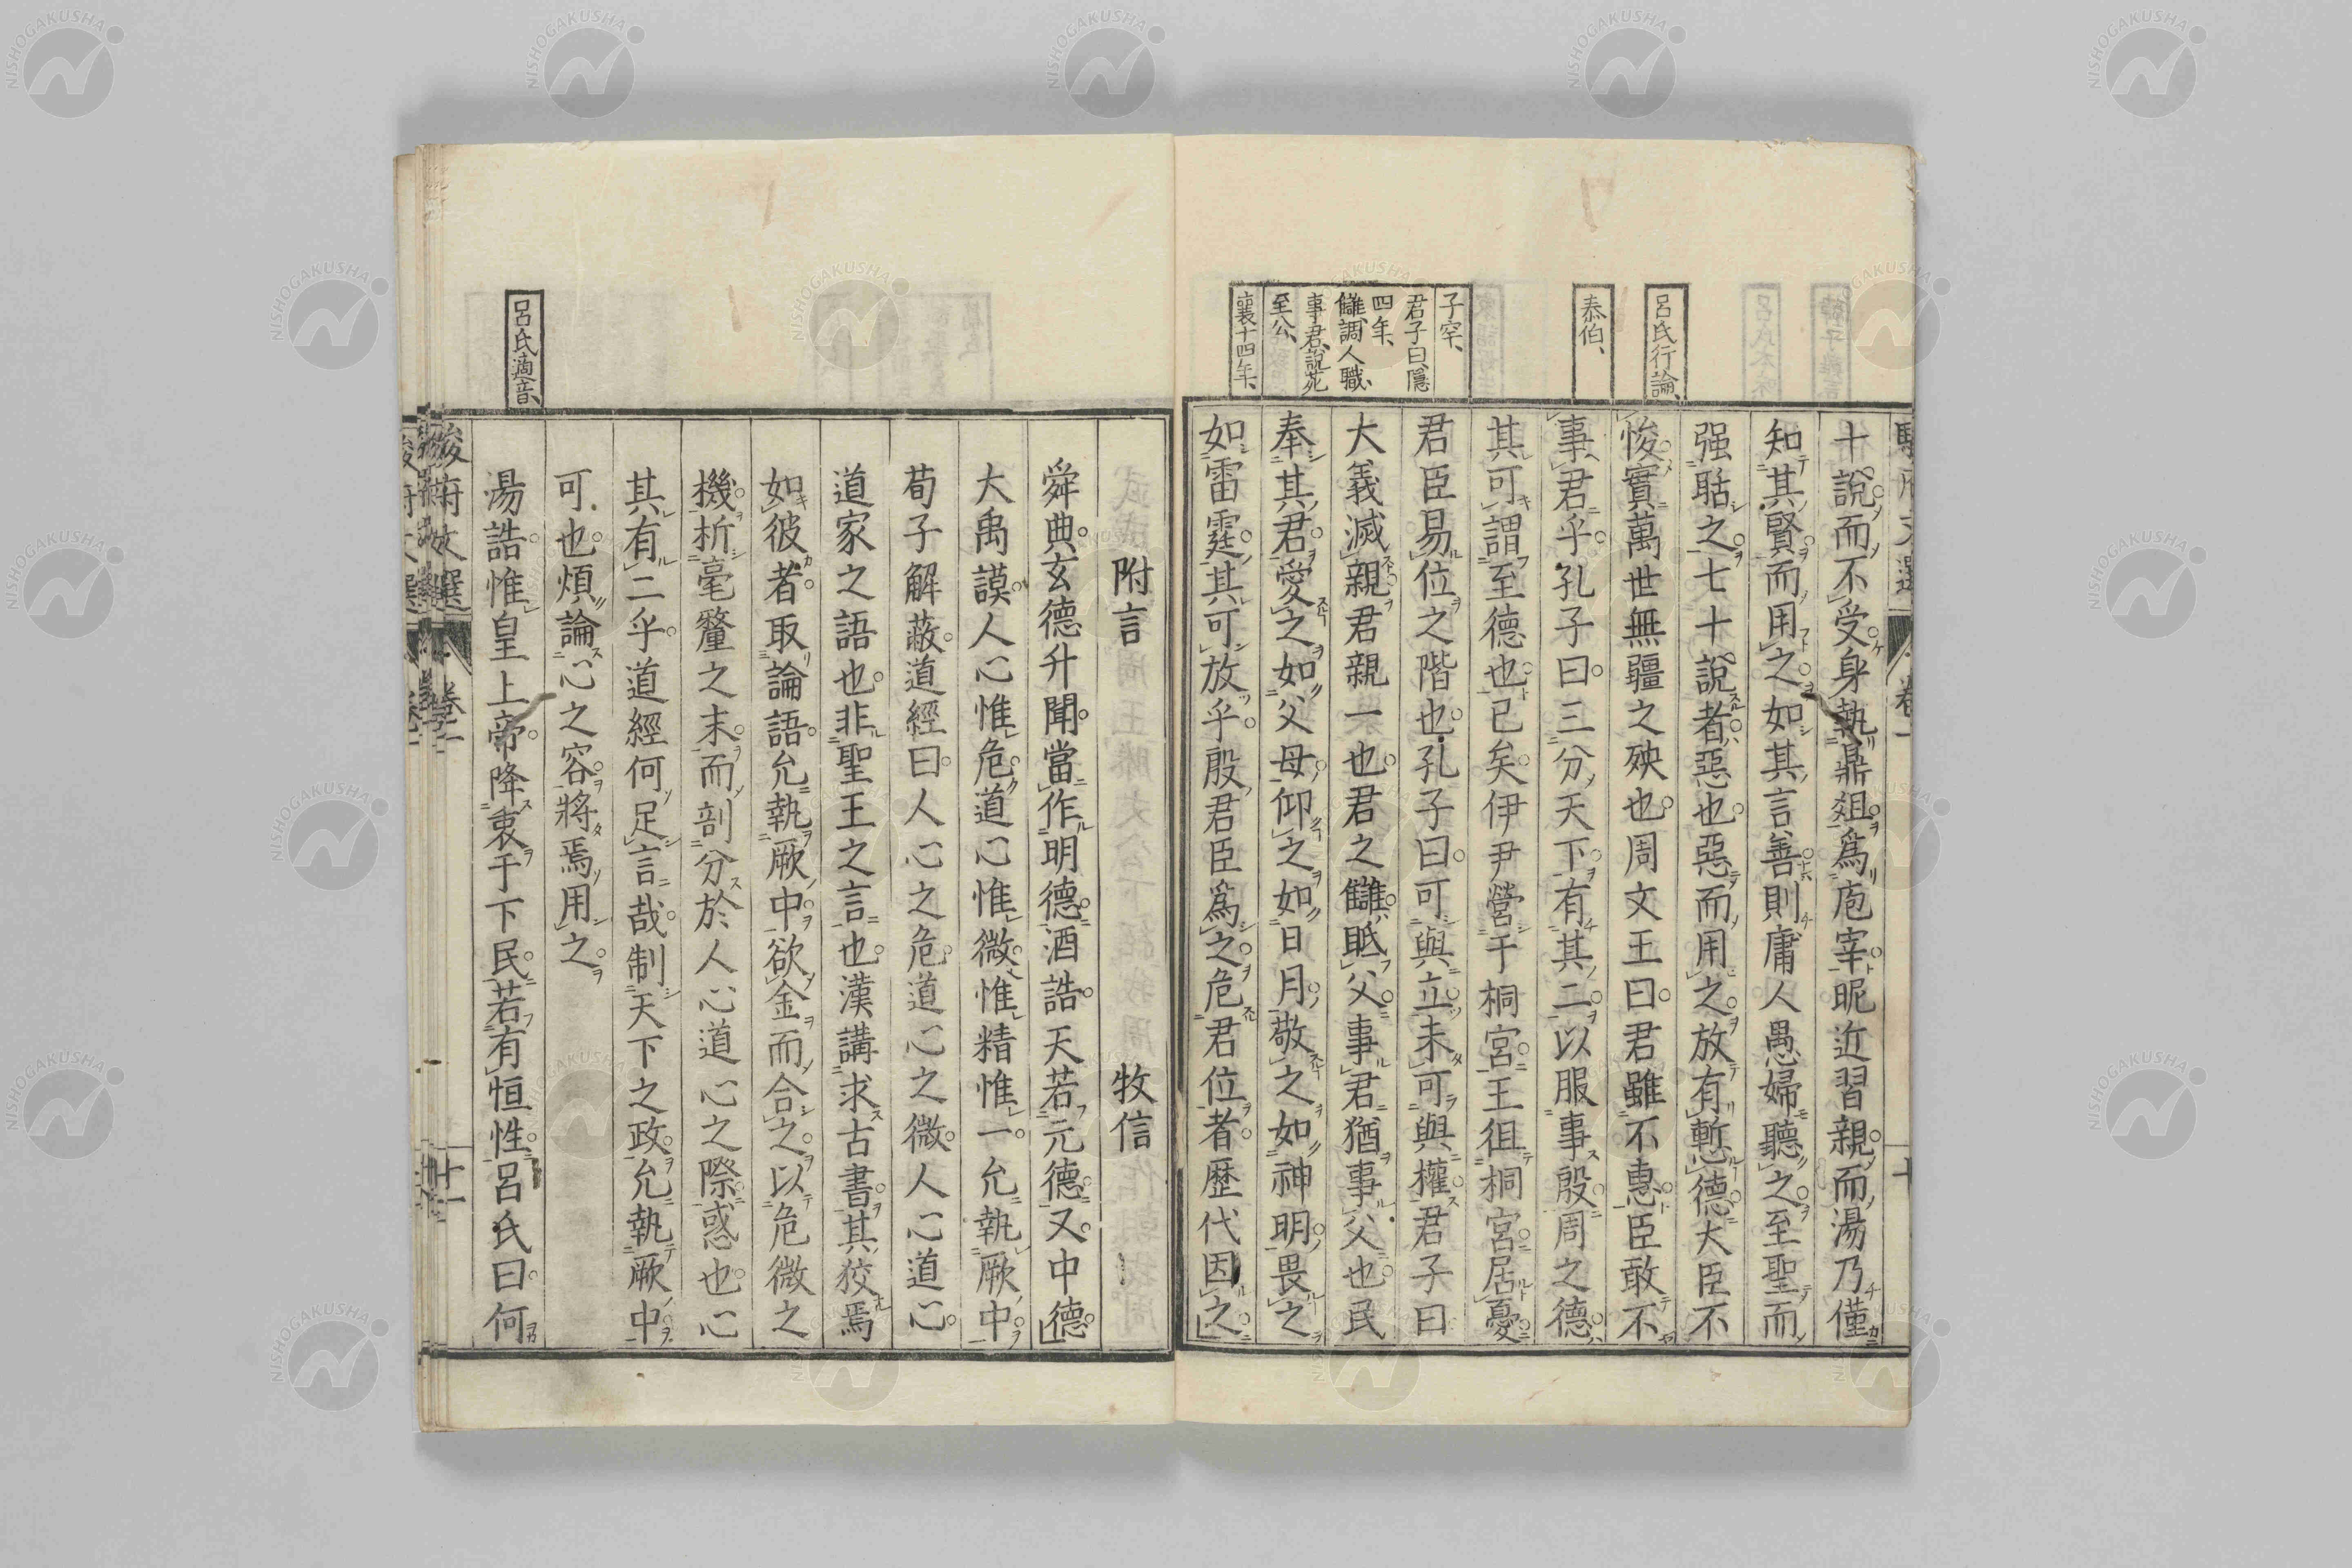 十說而不受身執鼎俎爲庖宰昵近習親而湯乃僅
知其賢而用之如其言善則庸人愚婦聽之至聖而
强聒之七十說者惡也惡而用之放有慙德大臣不
悛實萬世無疆之殃也周文王曰君雖不惠臣敢不
事君乎孔子曰三分天下有其二以服事殷周之德
其可謂至德也已矣伊尹營于桐宮王徂桐宮居憂
君臣易位之階也孔子曰可與立未可與權君子曰
大義滅親君親一也君之讎眡父事君猶事父也民
奉其君愛之如父母仰之如日月敬之如神明畏之
如雷霆其可放乎殷君臣爲之危君位者歷代因之
呂氏行論、
泰伯、
子罕、
君子曰、隱
四年、
讎、調人職、
事君、說苑
至公、
襄十四年、
附言 牧信
舜典玄德升聞當作明德酒誥天若元德又中德
大禹謨人心惟危道心惟微惟精惟一允執厥中
荀子解蔽道經曰人心之危道心之微人心道心
道家之語也非聖王之言也漢講求古書其狡焉
如彼者取論語允執厥中欲金而合之以危微之
機析毫釐之末而剖分於人心道心之際惑也心
其有二乎道經何足言哉制天下之政允執厥中
可也煩論心之容將焉用之
湯誥惟皇上帝降衷于下民若有恒性呂氏曰何
呂氏適音、